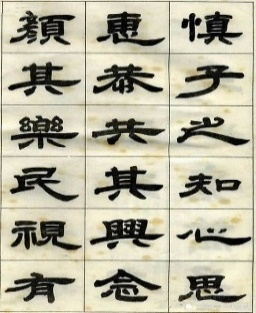 慎子之知心思
惠恭共其興念
顏其樂民視有